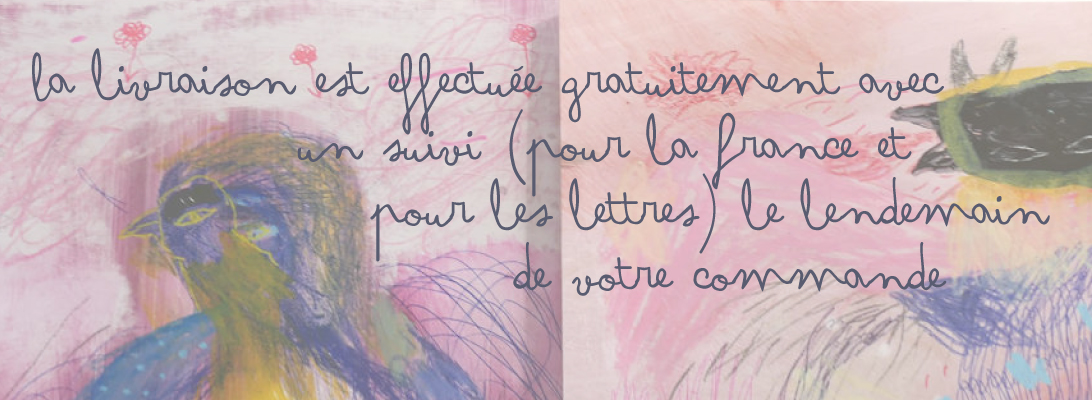 la livraison est effectuée gratuitement avec
un suivi (pour la france et
pour les lettres) le lendemain
de votre commande